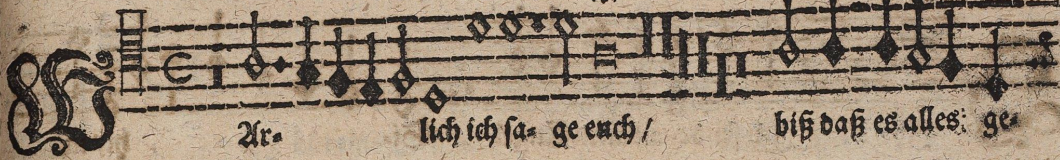 WAr- lich ich sa- ge euch / biß daß es alles: ge-